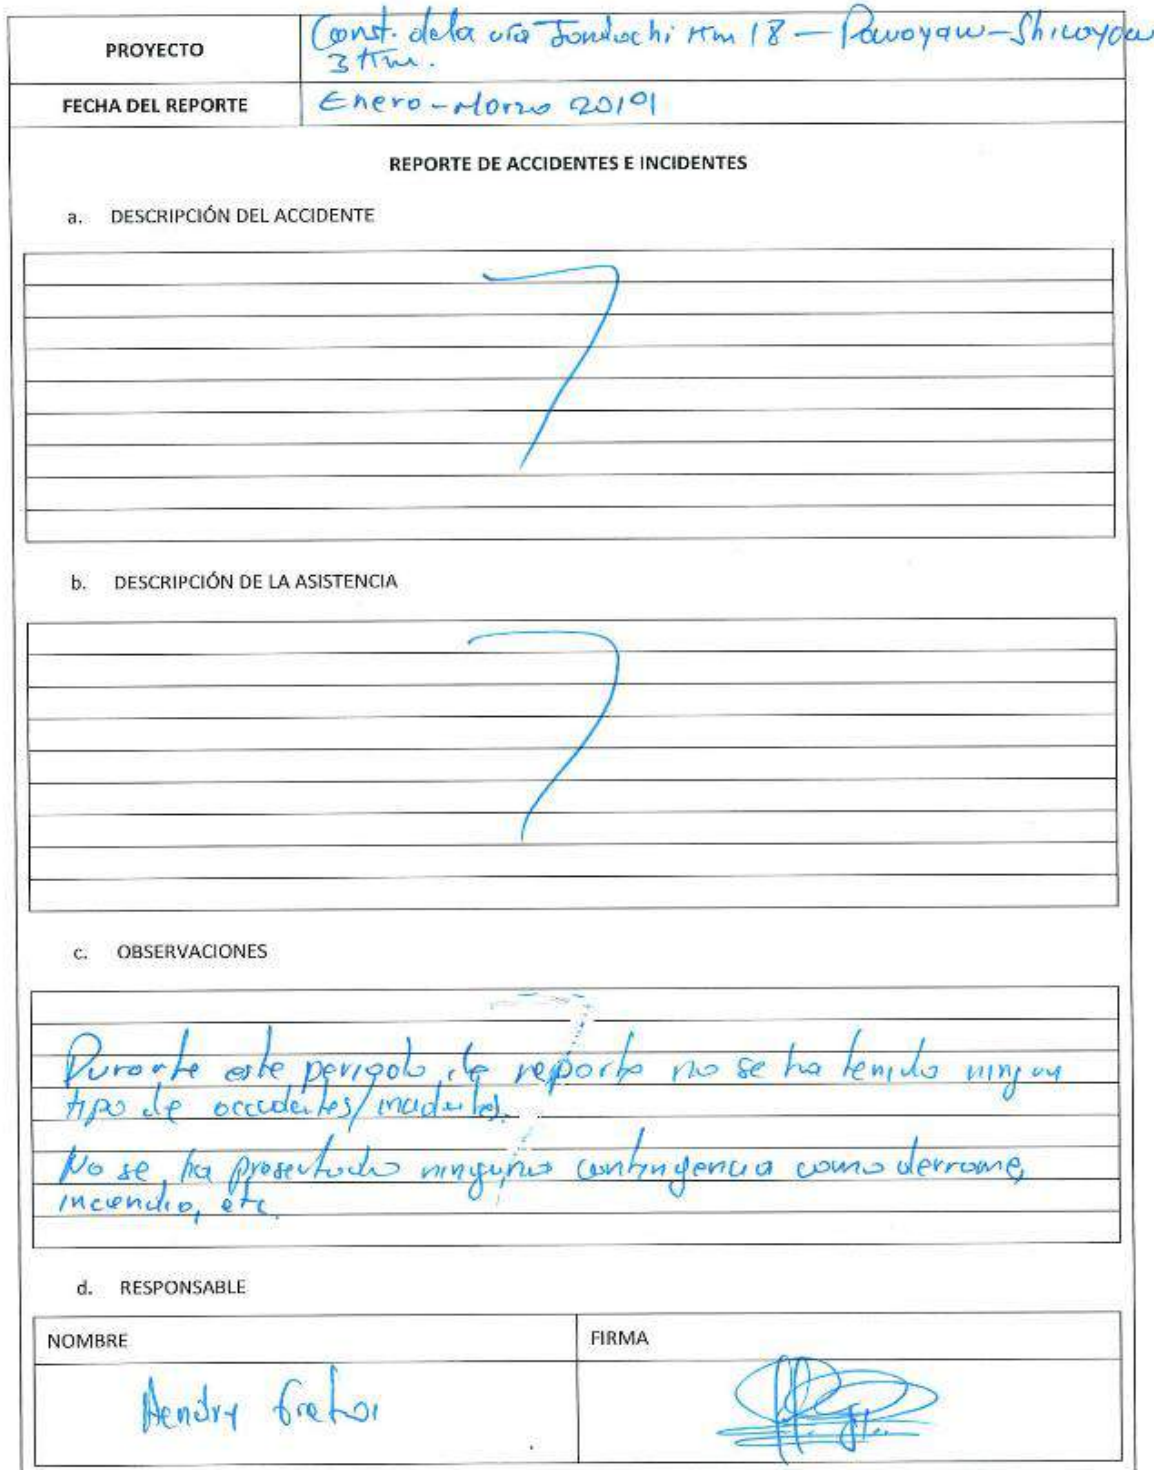 PROYECTO
Const. de la vía Jondachi Km 18 – Pawayaw – Shiwayaw
3 Km.
FECHA DEL REPORTE
Enero - Marzo 2019
REPORTE DE ACCIDENTES E INCIDENTES
a. DESCRIPCIÓN DEL ACCIDENTE
b. DESCRIPCIÓN DE LA ASISTENCIA
c. OBSERVACIONES
Durante este periodo de reporte no se ha tenido ningun
tipo de accidentes/incidentes.
No se ha presentado ninguna contingencia como derrame,
incendio, etc.
d. RESPONSABLE
NOMBRE
FIRMA
Hendry